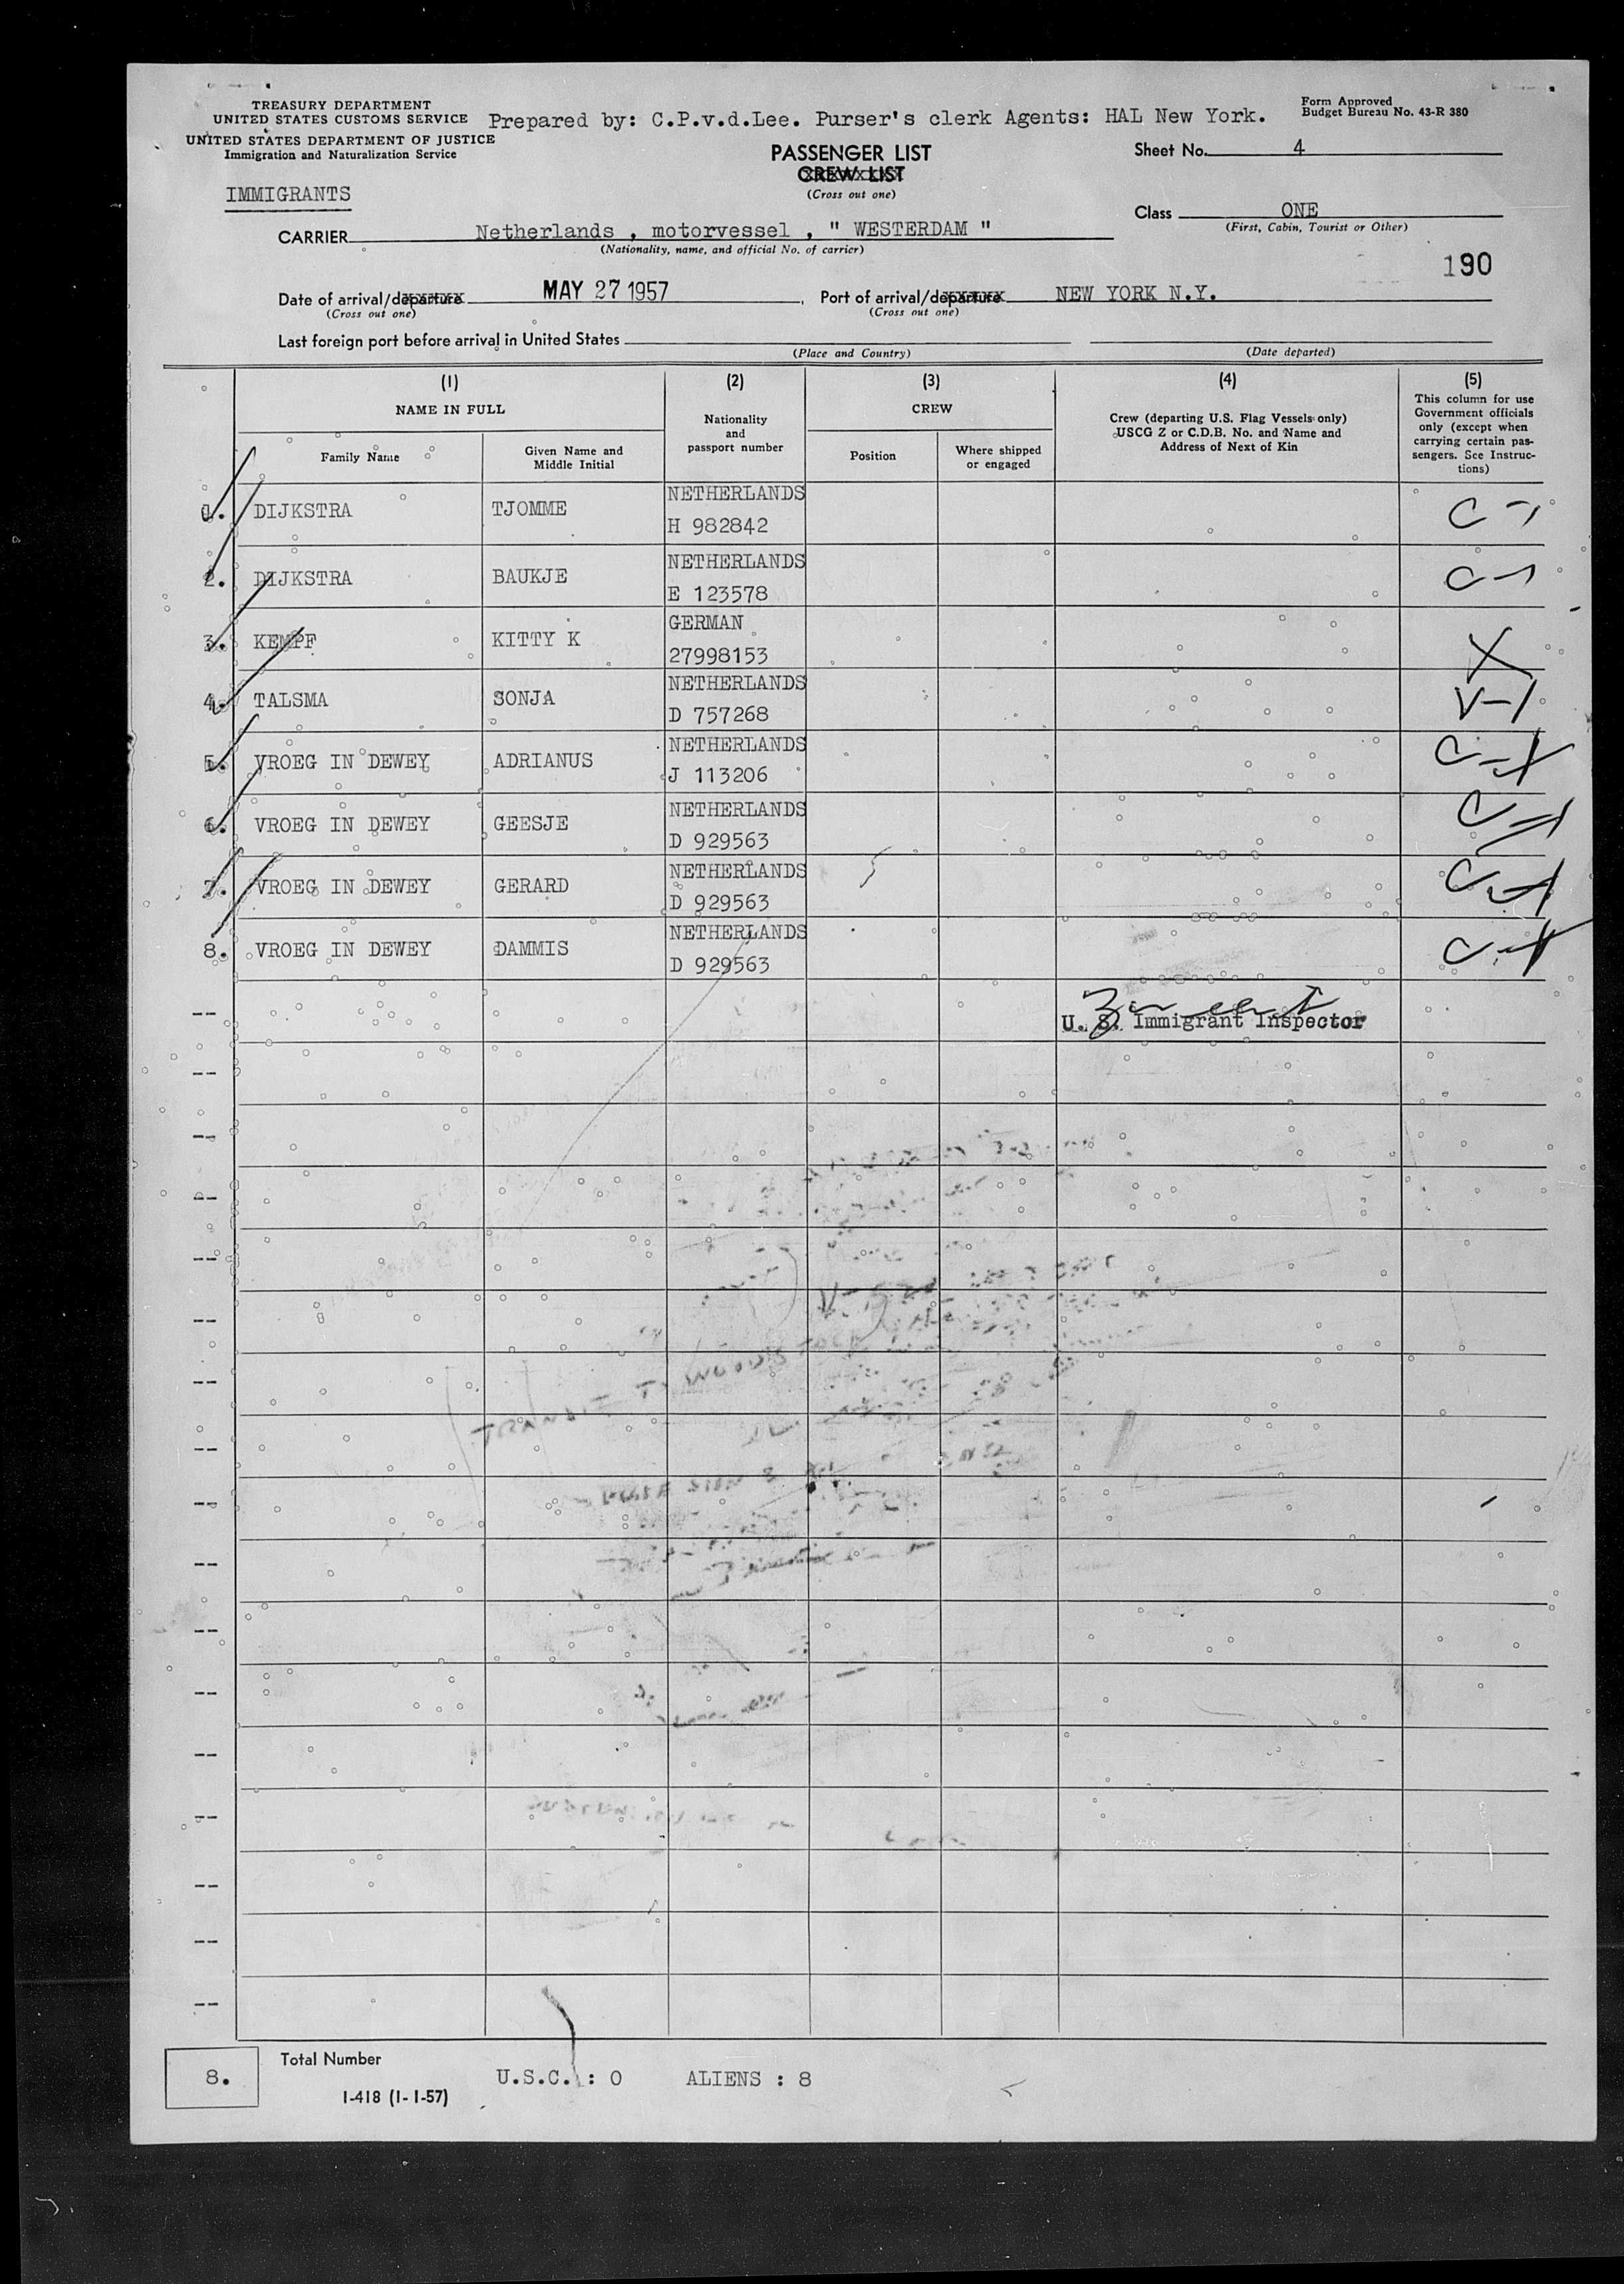 TREASURY DEPARTMENT
UNITED STATES CUSTOMS SERVICE
UNITED STATES DEPARTMENT OF JUSTICE
Immigration and Naturalization Service
Prepared by: C.P.v.d.Lee. Purser's clerk Agents: HAL New York.
Form Approved
Budget Bureau No. 43-R 380
PASSENGER LIST
CREW LIST
(Cross out one)
Sheet No. 4
IMMIGRANTS
Class ONE
(First, Cabin, Tourist or Other)
CARRIER Netherlands , motorvessel , " WESTERDAM "
(Nationality, name, and official No. of carrier)
190
Date of arrival/departure MAY 27 1957, Port of arrival/departure NEW YORK N.Y.
(Cross out one) (Cross out one)
Last foreign port before arrival in United States
(Place and Country) (Date departed)
(1) (2) (3) (4) (5)
NAME IN FULL
Family Name
Given Name and
Middle Initial
Nationality
and
passport number
CREW
Position
Where shipped
or engaged
Crew (departing U.S. Flag Vessels only)
USCG Z or C.D.B. No. and Name and
Address of Next of Kin
This column for use
Government officials
only (except when
carrying certain pas-
sengers. See Instruc-
tions)
1. DIJKSTRA TJOMME NETHERLANDS
H 982842
2. DIJKSTRA BAUKJE NETHERLANDS
E 123578
3. KEMPF KITTY K GERMAN
27998153 X
4. TALSMA SONJA NETHERLANDS
D 757268 V-1
5. VROEG IN DEWEY ADRIANUS NETHERLANDS
J 113206
6. VROEG IN DEWEY GEESJE NETHERLANDS
D 929563
7. VROEG IN DEWEY GERARD NETHERLANDS
D 929563
8. VROEG IN DEWEY DAMMIS NETHERLANDS
D 929563
U. S. Immigrant Inspector
8.
Total Number
I-418 (1-1-57)
U.S.C. : 0 ALIENS : 8